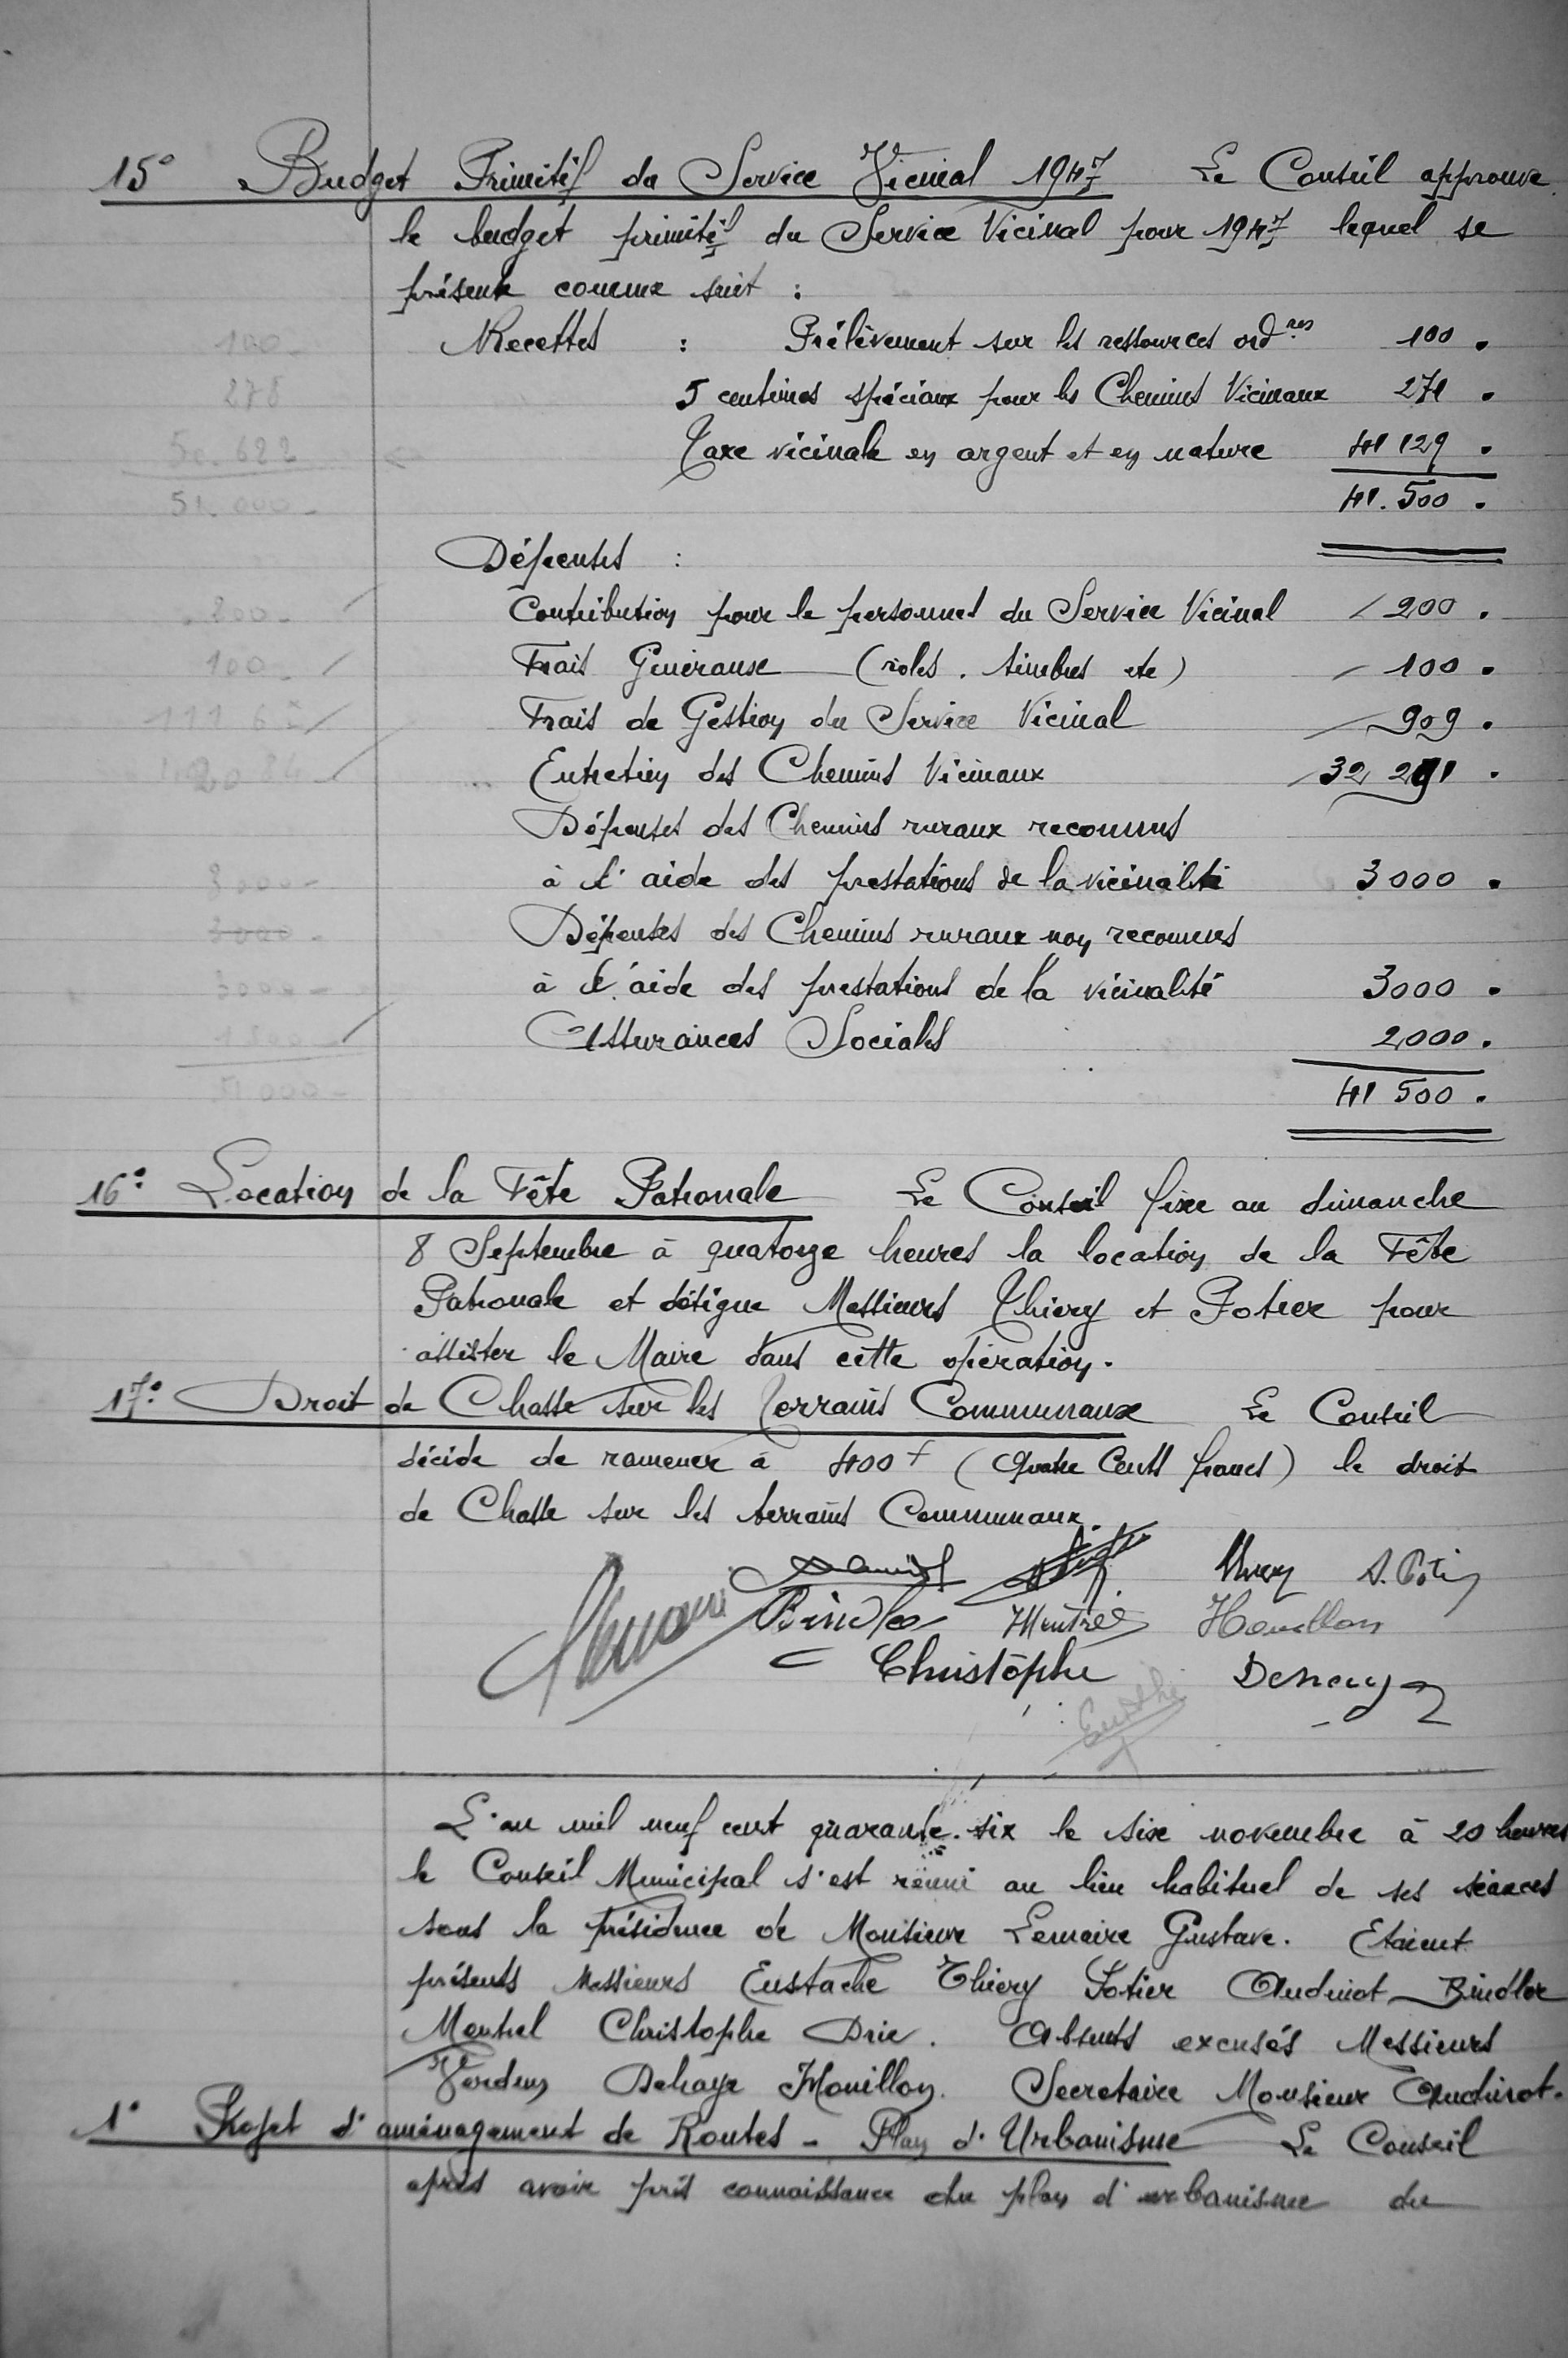 15° Budget Primitif du Service Vicinal 1947 Le Conseil approuve
le budget primitif du Service Vicinal pour 1947 lequel se
présente comme suit :
100 - Recettes : Prélèvement sur les ressources ord.res 100 .
278 5 centimes spéciaux pour les Chemins Vicinaux 271 .
50.622 Taxe vicinale en argent et en nature 41 129 .
51.000 - 41.500 .
Dépenses :
200 - Contribution pour le personnel du Service Vicinal 200 .
100 - Frais Généraux (roles . timbres etc) 100 .
Frais de Gestion du Service Vicinal 909 .
Entretien des Chemins Vicinaux 32 291 .
Dépenses des Chemins ruraux reconnus
3000 - à l'aide des prestations de la vicinalité 3000 .
3000 - Dépenses des Chemins ruraux non reconnus
3000 - à l'aide des prestations de la vicinalité 3000 .
Assurances Sociales 2000 .
51 000 - 41 500 .
16° Location de la Fête Patronale Le Conseil fixe au dimanche
8 Septembre à quatorze heures la location de la Fête
Patronale et désigne Messieurs Thiery et Potier pour
assister le Maire dans cette opération.
17° Droit de Chasse sur les Terrains Communaux Le Conseil
décide de ramener à 400 f (Quatre Cents francs) le droit
de Chasse sur les terrains Communaux.
Thiery
Bindler Mentrel Houillon
Christophe Dehaye
Eustache
L'an mil neuf cent quarante-six le six novembre à 20 heures
le Conseil Municipal s'est réuni au lieu habituel de ses séances
sous la présidence de Monsieur Lemaire Gustave. Etaient
présents Messieurs Eustache Thiery Potier Audinot Bindler
Mentrel Christophe Drie. Absents excusés Messieurs
Verdun Dehaye Houillon. Secretaire Monsieur Audinot.
1° Projet d'aménagement de Routes - Plan d'Urbanisme Le Conseil
après avoir pris connaissance du plan d'urbanisme du